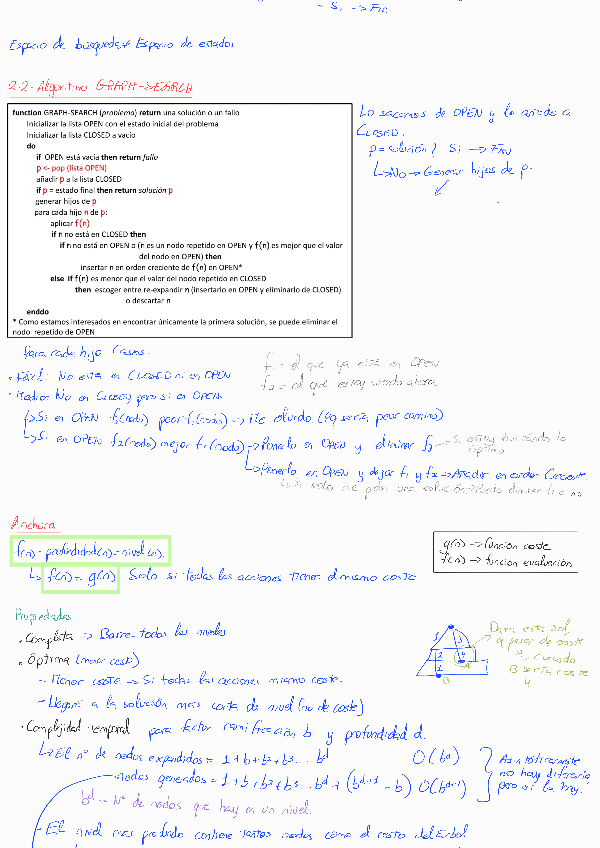 - Si -> Fin.
Espacio de búsqueda ≠ Espacio de estados
2.2.- Algoritmo GRAPH-SEARCH
function GRAPH-SEARCH (problema) return una solución o un fallo
Inicializar la lista OPEN con el estado inicial del problema
Inicializar la lista CLOSED a vacío
do
if OPEN está vacía then return fallo
p <- pop (lista OPEN)
añadir p a la lista CLOSED
if p = estado final then return solución p
generar hijos de p
para cada hijo n de p:
aplicar f(n)
if n no está en CLOSED then
if n no está en OPEN o (n es un nodo repetido en OPEN y f(n) es mejor que el valor
del nodo en OPEN) then
insertar n en orden creciente de f(n) en OPEN*
else if f(n) es menor que el valor del nodo repetido en CLOSED
then escoger entre re-expandir n (insertarlo en OPEN y eliminarlo de CLOSED)
o descartar n
enddo
* Como estamos interesados en encontrar únicamente la primera solución, se puede eliminar el
nodo repetido de OPEN
Lo sacamos de OPEN y lo añado a
CLOSED.
p = solución? Si -> FIN
↳ No -> Generar hijos de p.
Para cada hijo Casos.
· Fácil: No está en CLOSED ni en OPEN
· Medio: No en CLOSED pero si en OPEN.
f1 = el que ya está en OPEN
f2 = el que estoy viendo ahora
↳ Si en OPEN f2(nodo) peor f1(nodo) -> Me olvido. (Pq sería peor camino)
↳ Si en OPEN f2(nodo) mejor f1(nodo) -> Ponerlo en OPEN y eliminar f1 -> Si estoy buscando la óptima
↳ Ponerlo en OPEN y dejar f1 y f2 -> Añadir en orden Creciente.
↳ Si solo me piden una solución puedo eliminar f1 o no
Anchura
f(n) = profundidad(n) = nivel(n).
↳ f(n) = g(n) Solo si todas las acciones tienen el mismo coste
g(n) -> función coste
f(n) -> función evaluación
Propiedades
· Completa -> Barre todos los niveles
· Óptima (menor coste)
- Menor coste -> Si todas las acciones mismo coste.
- Llegará a la solución más corta de nivel (no de coste)
Daría esta sol,
a pesar de coste
7, cuando
B sería coste
4
A
B
· Complejidad temporal para factor ramificación b y profundidad d.
↳ El nº de nodos expandidos = 1+b+b²+b³... b^d O(b^d)
nodos generados = 1+b+b²+b³...b^d + (b^d+1 - b) O(b^d+1)
Asintóticamente
no hay diferencia
pero si la hay.
b^d -- Nº de nodos que hay en un nivel.
- El nivel más profundo contiene tantos nodos como el resto del árbol.